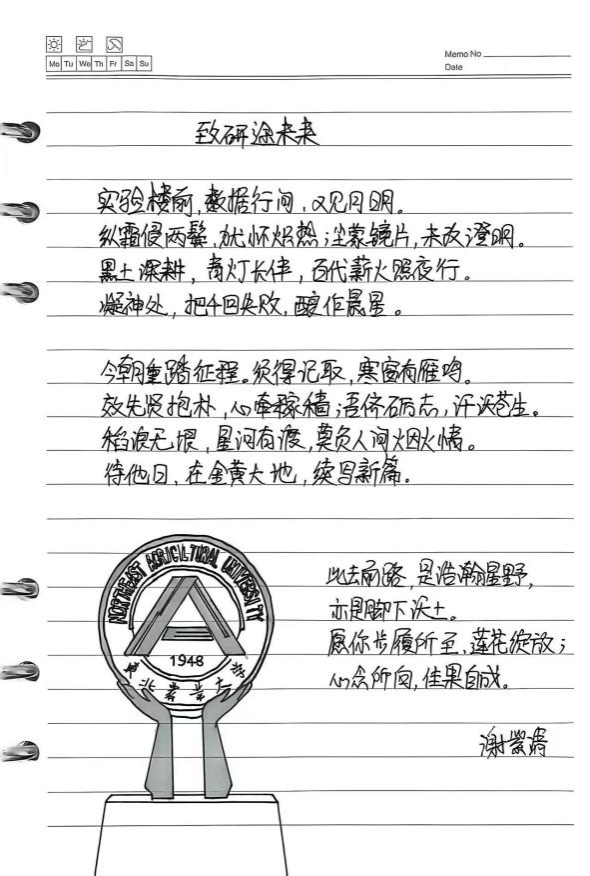 Memo No
Mo Tu We Th Fr Sa Su
Date
致研途未来
实验楼前,数据行间,又见月明。
纵霜侵两鬓,犹怀炽热;尘蒙镜片,未改澄明。
黑土深耕,青灯长伴,百代薪火照夜行。
凝神处,把千回失败,酿作晨星。
今朝重踏征程。须得记取,寒窗有雁鸣。
效先贤抱朴,心牵稼穑;吾侪砺志,汗沃苍生。
稻浪无垠,星河有渡,莫负人间烟火情。
待他日,在金黄大地,续写新篇。
NORTHEAST AGRICULTURAL UNIVERSITY
1948
东北农业大学
此去前路,是浩瀚星野,
亦是脚下沃土。
愿你步履所至,莲花绽放;
心念所向,佳果自成。